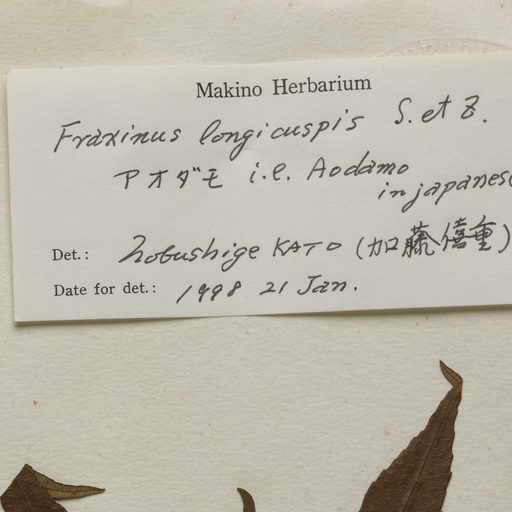 Makino Herbarium
Fraxinus longicuspis S. et Z.
アオダモ i.e. Aodamo
in japanese
Det.: Nobushige KATO (加藤僖重)
Date for det.: 1998 21 Jan.